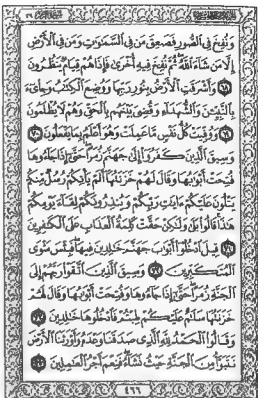 وَنُفِخَ فِي الصُّورِ فَصَعِقَ مَن فِي السَّمَاوَاتِ وَمَن فِي الْأَرْضِ
إِلَّا مَن شَاءَ اللَّهُ ثُمَّ نُفِخَ فِيهِ أُخْرَىٰ فَإِذَا هُمْ قِيَامٌ يَنظُرُونَ
٦٨ وَأَشْرَقَتِ الْأَرْضُ بِنُورِ رَبِّهَا وَوُضِعَ الْكِتَابُ وَجِايءَ
بِالنَّبِيِّينَ وَالشُّهَدَاءِ وَقُضِيَ بَيْنَهُم بِالْحَقِّ وَهُمْ لَا يُظْلَمُونَ
٦٩ وَوُفِّيَتْ كُلُّ نَفْسٍ مَّا عَمِلَتْ وَهُوَ أَعْلَمُ بِمَا يَفْعَلُونَ ٧٠
وَسِيقَ الَّذِينَ كَفَرُوا إِلَىٰ جَهَنَّمَ زُمَرًا حَتَّىٰ إِذَا جَاءُوهَا
فُتِحَتْ أَبْوَابُهَا وَقَالَ لَهُمْ خَزَنَتُهَا أَلَمْ يَأْتِكُمْ رُسُلٌ مِّنكُمْ
يَتْلُونَ عَلَيْكُمْ آيَاتِ رَبِّكُمْ وَيُنذِرُونَكُمْ لِقَاءَ يَوْمِكُمْ
هَٰذَا قَالُوا بَلَىٰ وَلَٰكِنْ حَقَّتْ كَلِمَةُ الْعَذَابِ عَلَى الْكَافِرِينَ
٧١ قِيلَ ادْخُلُوا أَبْوَابَ جَهَنَّمَ خَالِدِينَ فِيهَا فَبِئْسَ مَثْوَى
الْمُتَكَبِّرِينَ ٧٢ وَسِيقَ الَّذِينَ اتَّقَوْا رَبَّهُمْ إِلَى
الْجَنَّةِ زُمَرًا حَتَّىٰ إِذَا جَاءُوهَا وَفُتِحَتْ أَبْوَابُهَا وَقَالَ لَهُمْ
خَزَنَتُهَا سَلَامٌ عَلَيْكُمْ طِبْتُمْ فَادْخُلُوهَا خَالِدِينَ ٧٣
وَقَالُوا الْحَمْدُ لِلَّهِ الَّذِي صَدَقَنَا وَعْدَهُ وَأَوْرَثَنَا الْأَرْضَ
نَتَبَوَّأُ مِنَ الْجَنَّةِ حَيْثُ نَشَاءُ فَنِعْمَ أَجْرُ الْعَامِلِينَ ٧٤
٤٦٦